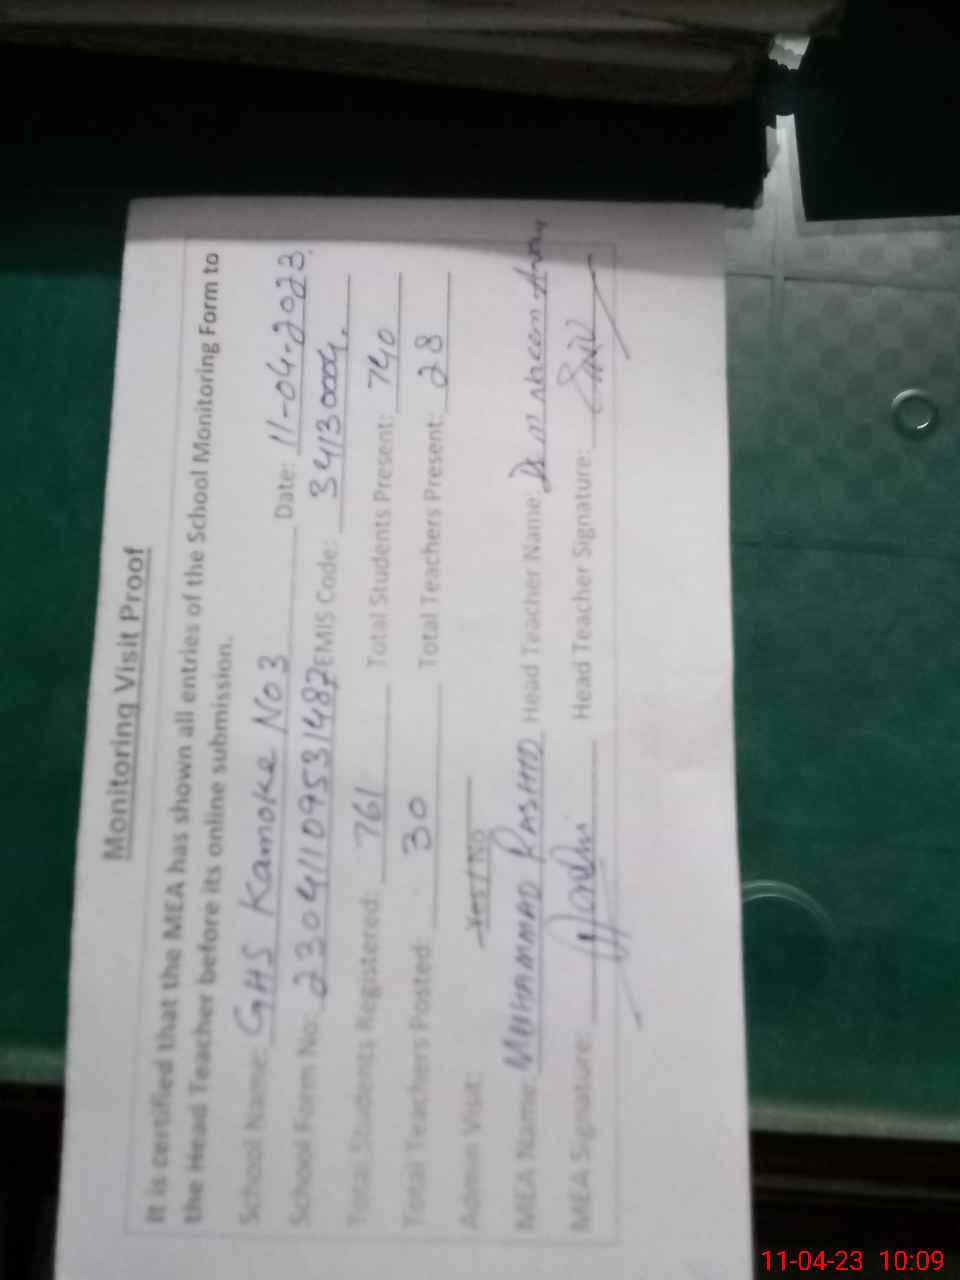 Monitoring Visit Proof
It is certified that the MEA has shown all entries of the School Monitoring Form to
the Head Teacher before its online submission.
School Name: GHS Kamoke No 3 Date: 11-04-2023
School Form No: 23041109531487 EMIS Code: 34130004
Total Students Registered: 761 Total Students Present: 740
Total Teachers Posted: 30 Total Teachers Present: 28
Admin Visit: Yes/No
MEA Name: MUHAMMAD RASHID Head Teacher Name:
MEA Signature: Head Teacher Signature:
11-04-23 10:09